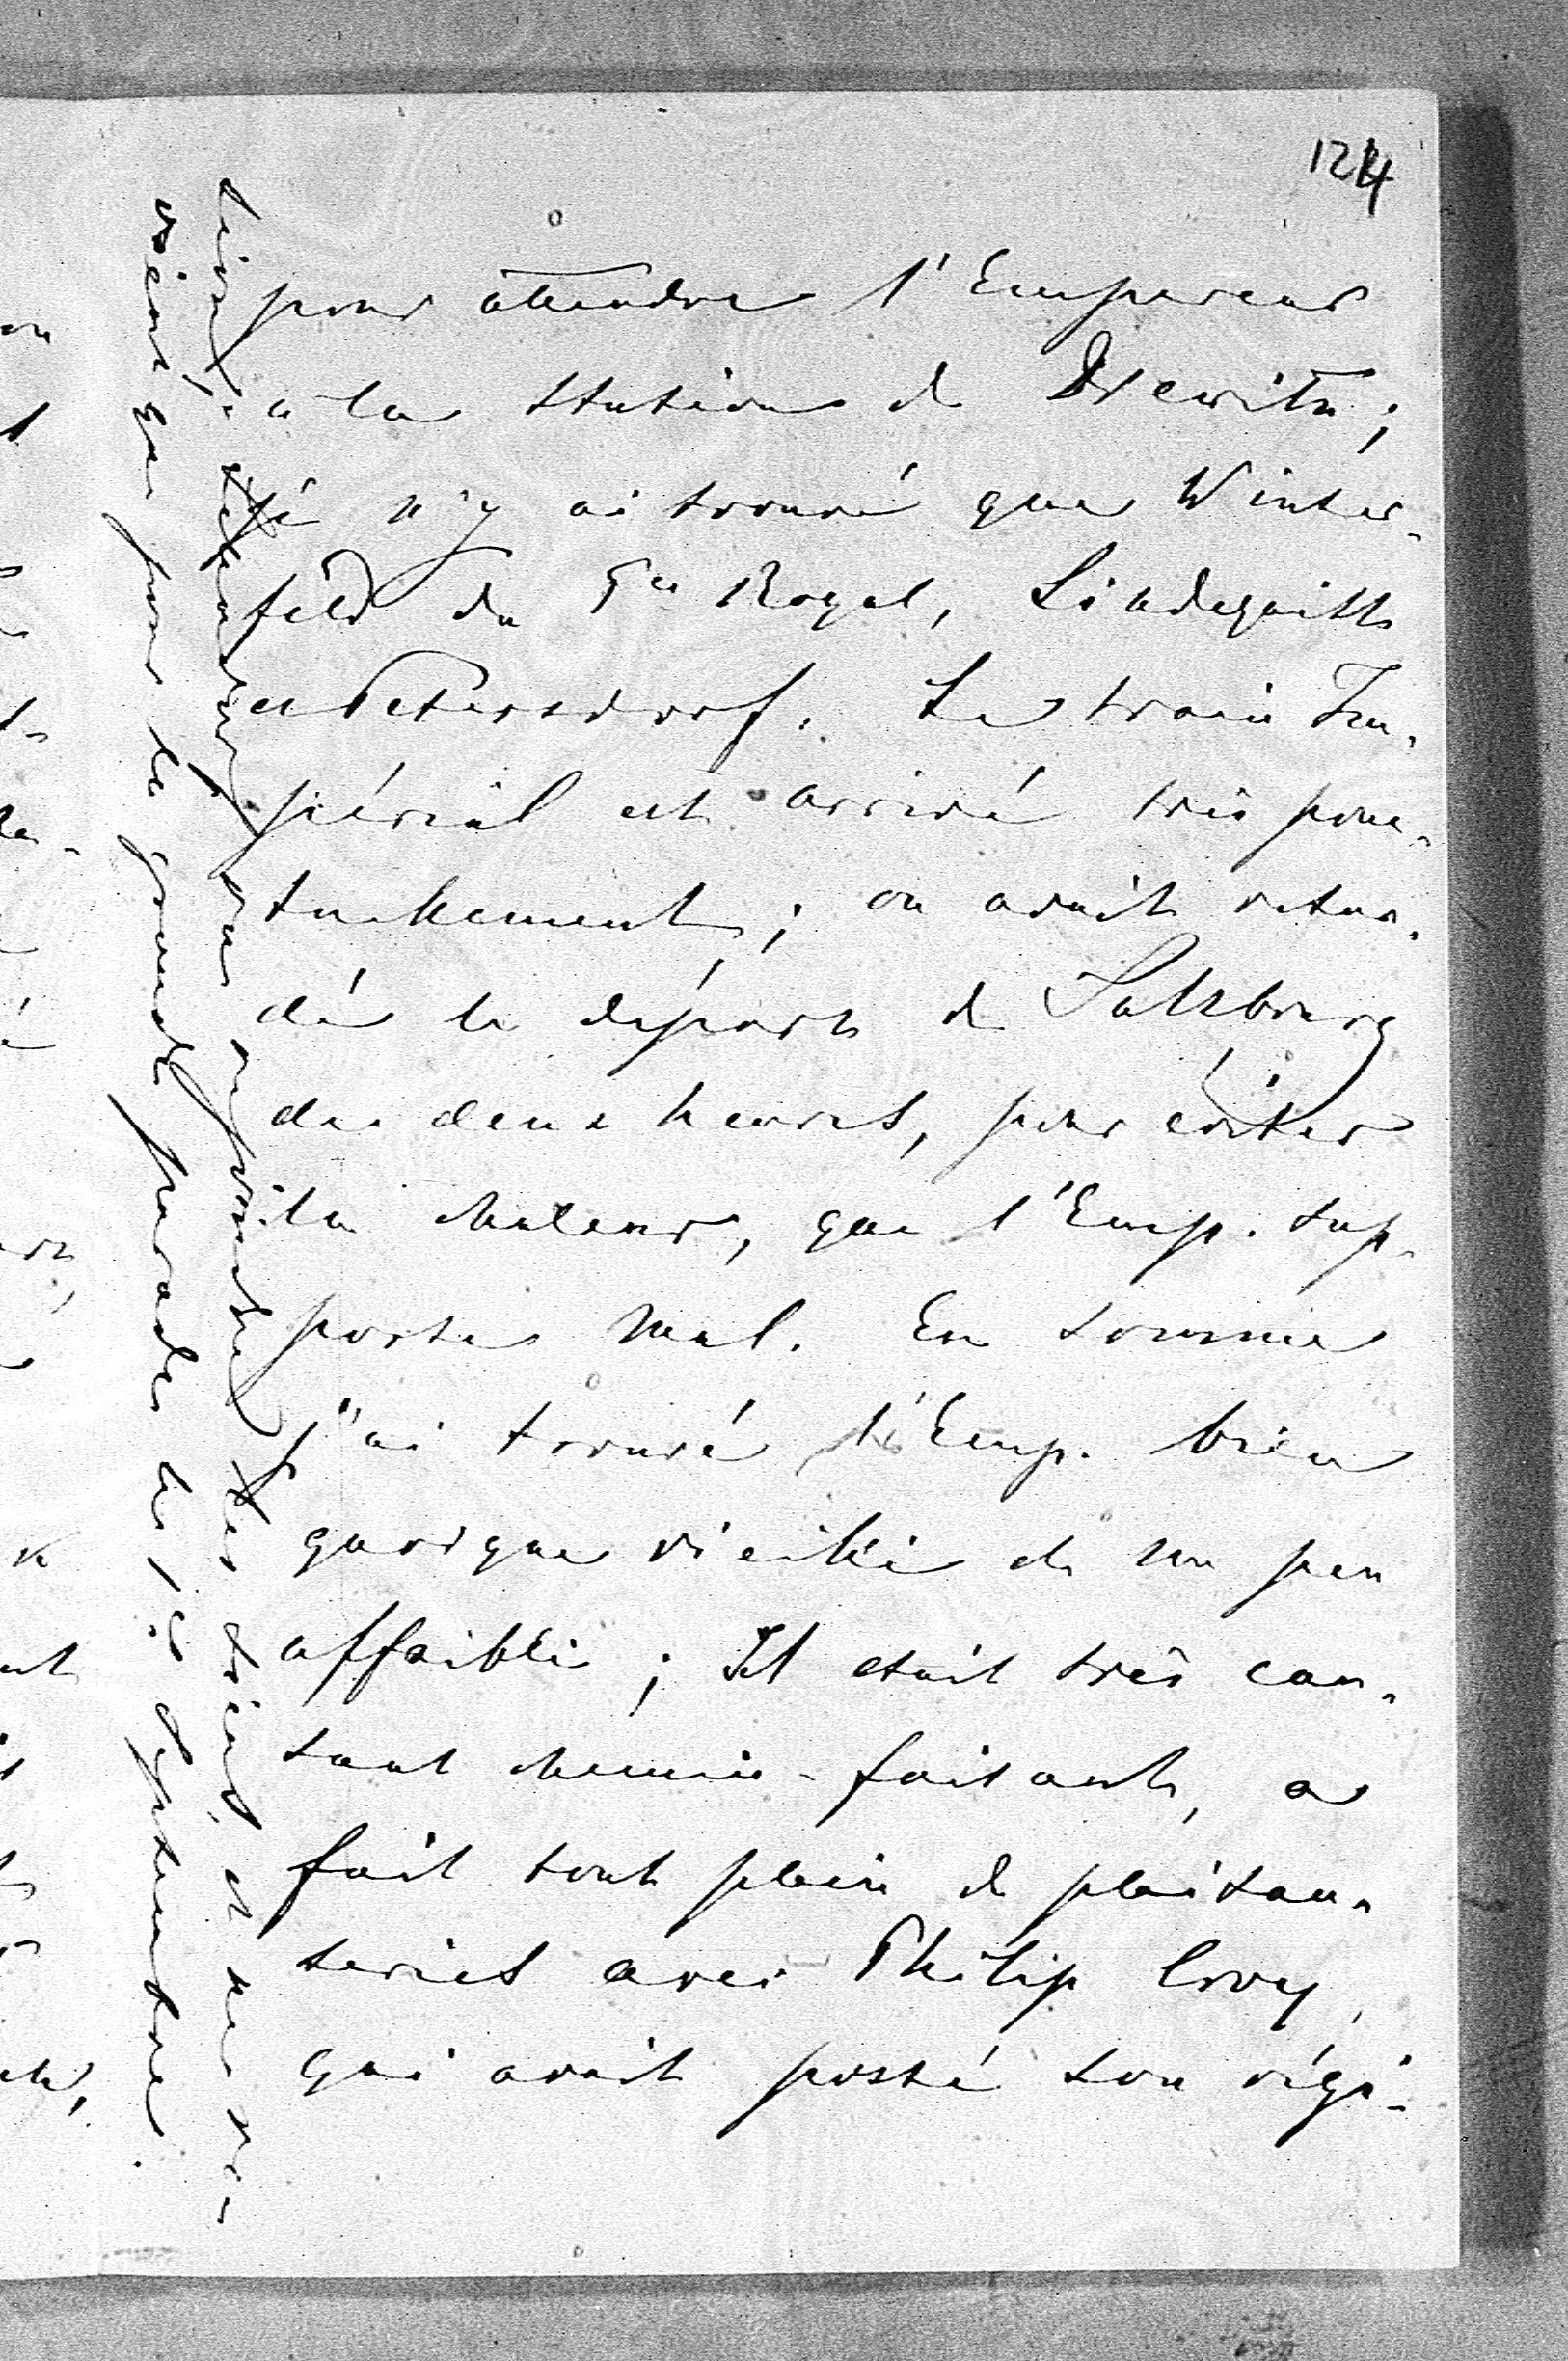 124
pour attendre l'Empereur
à la station de Drewitz;
je n'y ai trouvé que Winter-
feld du Gn Royal, Lindequist
et Petersdorf. Le train Im-
périal est arrivé très ponc-
tuellement; on avait retar-
dé le départ de Salzbourg
de deux heures, pour éviter
la chaleur, que l'Emp. sup-
porte mal. En somme
j'ai trouvé l'Emp. bien
quoique vieilli et un peu
affaibli; Il etait très cau-
sant chemin-faisant, a
fait tout plein de plaisan-
teries avec Philip Croy,
qui avait posté son régi-
les et ne re-
vient que pour la grande parade le 1r Septembre.